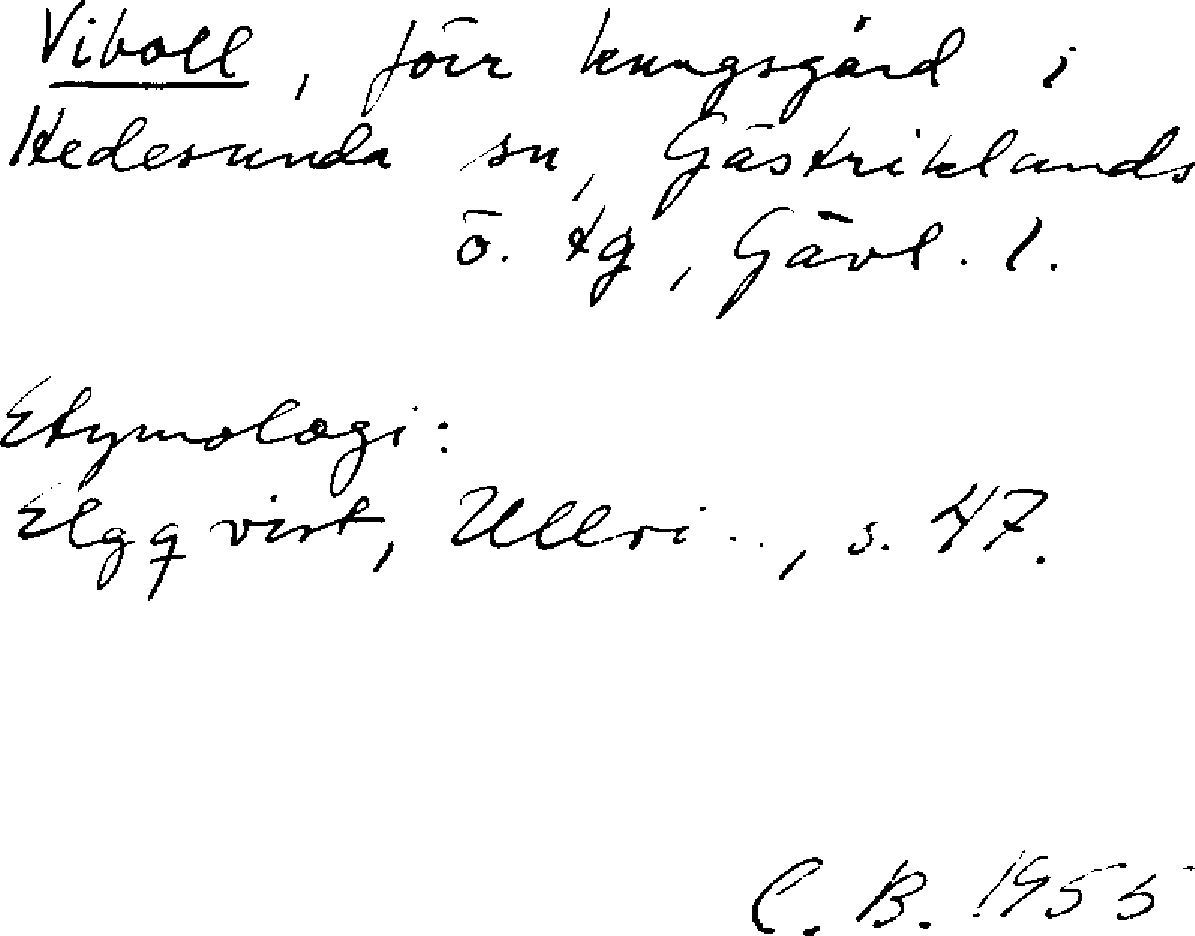 Viboll, förr kungsgård i
Hedesunda sn, Gästriklands
ö. tg, Gävl. l.
Etymologi:
Elgqvist, Ullvi.., s. 47.
C. B. 1955